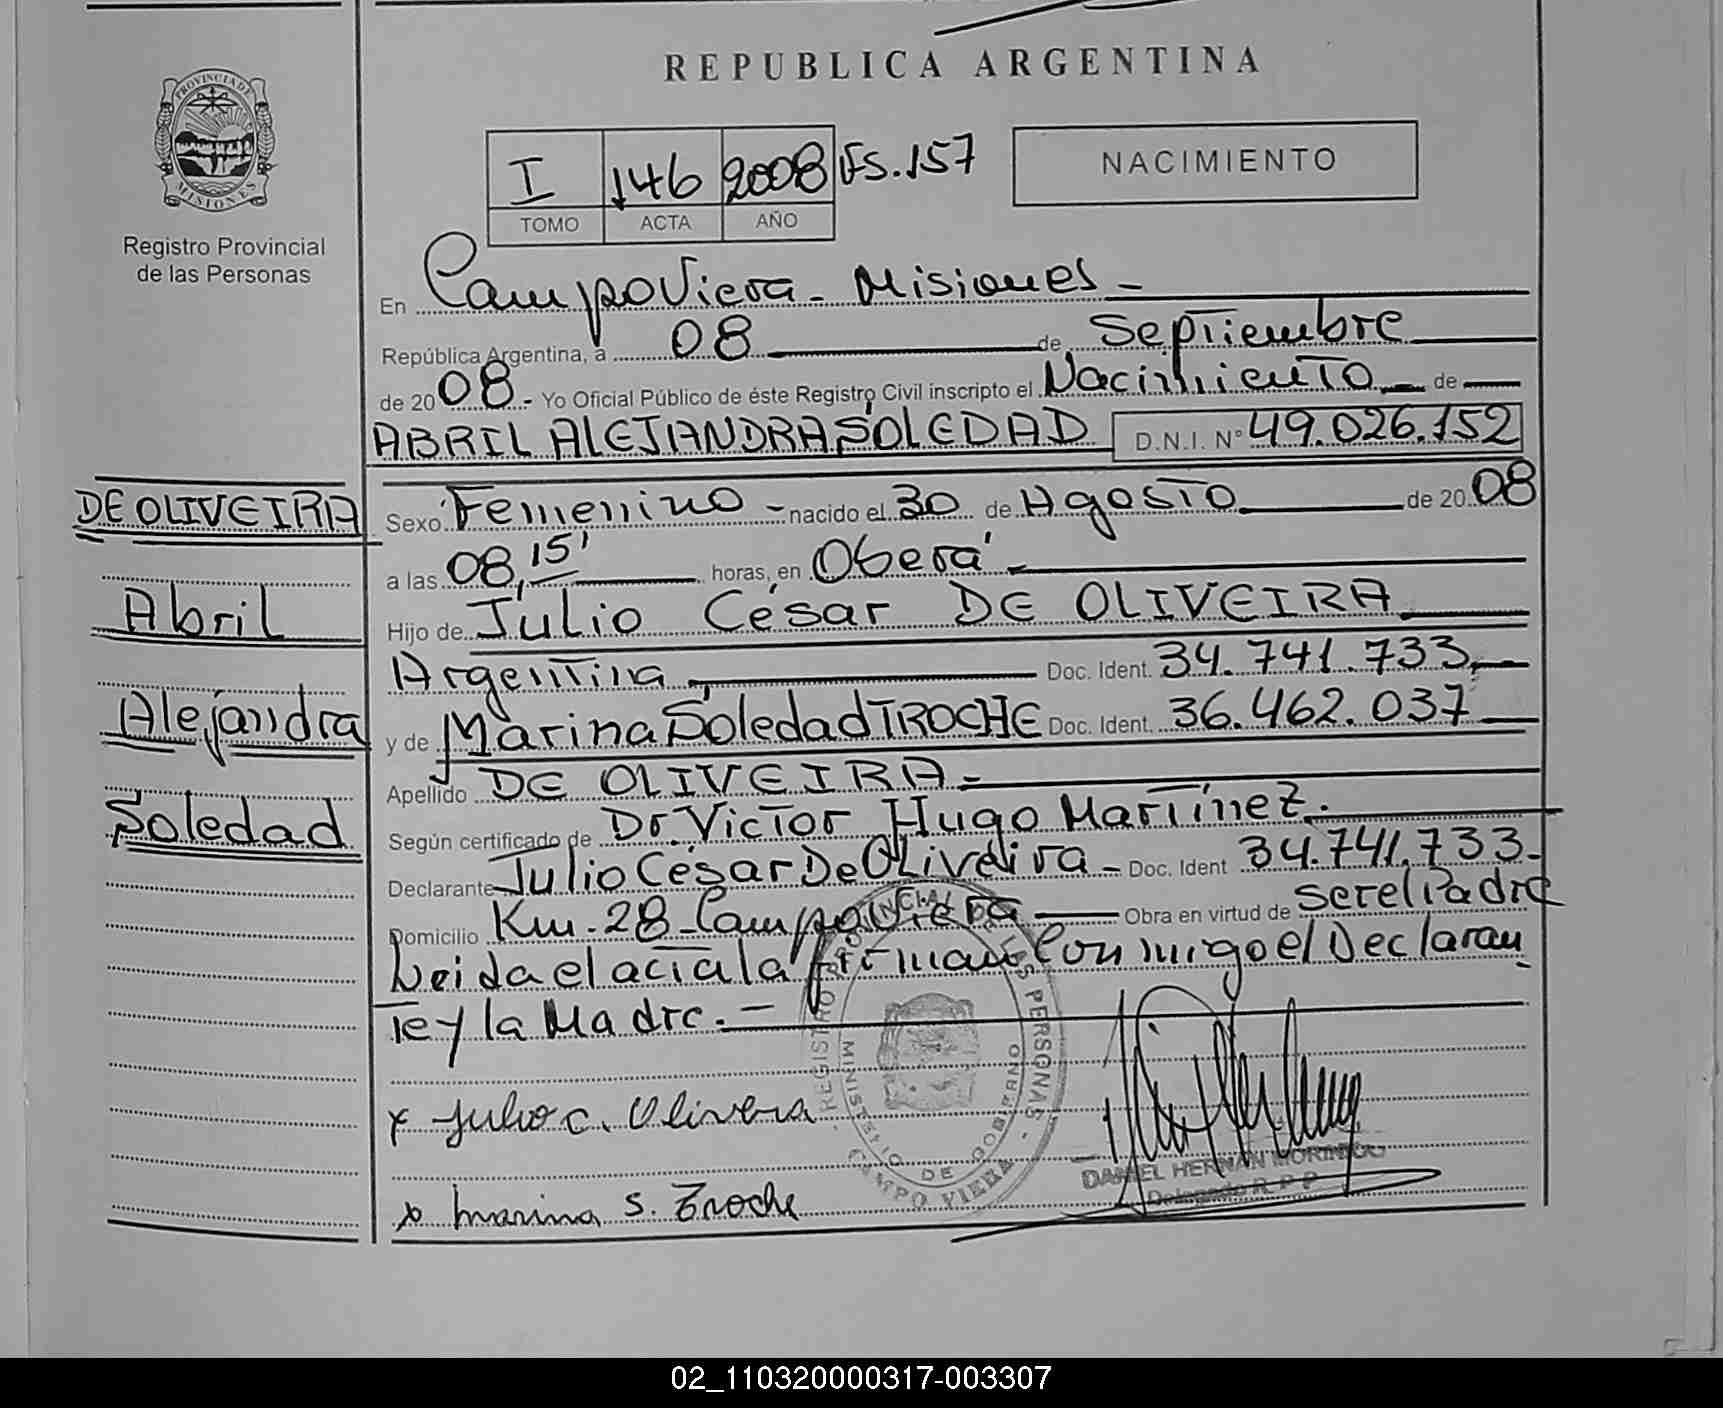 REPUBLICA ARGENTINA
PROVINCIA DE MISIONES
Registro Provincial
de las Personas
I 146 2008 Fs. 157
TOMO ACTA AÑO
NACIMIENTO
En Campo Viera - Misiones -
República Argentina, a 08 de Septiembre
de 20 08 - Yo Oficial Público de éste Registro Civil inscripto el Nacimiento de
ABRIL ALEJANDRA SOLEDAD D.N.I. N° 49.026.152
DE OLIVEIRA
Abril
Alejandra
Soledad
Sexo Femenino - nacido el 30 de Agosto de 20 08
a las 08,15' horas, en Oberá -
Hijo de Julio César DE OLIVEIRA
Argentina Doc. Ident. 34.741.733
y de Marina Soledad TROCHE Doc. Ident. 36.462.037
Apellido DE OLIVEIRA -
Según certificado de Dr. Victor Hugo Martínez.
Declarante Julio César De Oliveira - Doc. Ident 34.741.733 -
Domicilio Km. 28 - Campo Viera Obra en virtud de ser el Padre
Leida el acta la firman Conmigo el Declaran
te y la Madre. -
x Julio C. Olivera
x Marina S. Troche
REGISTRO PROVINCIAL DE LAS PERSONAS -
MINISTERIO DE GOBIERNO
CAMPO VIERA
DANIEL HERNAN
Delegado R.P.P.
02_110320000317-003307